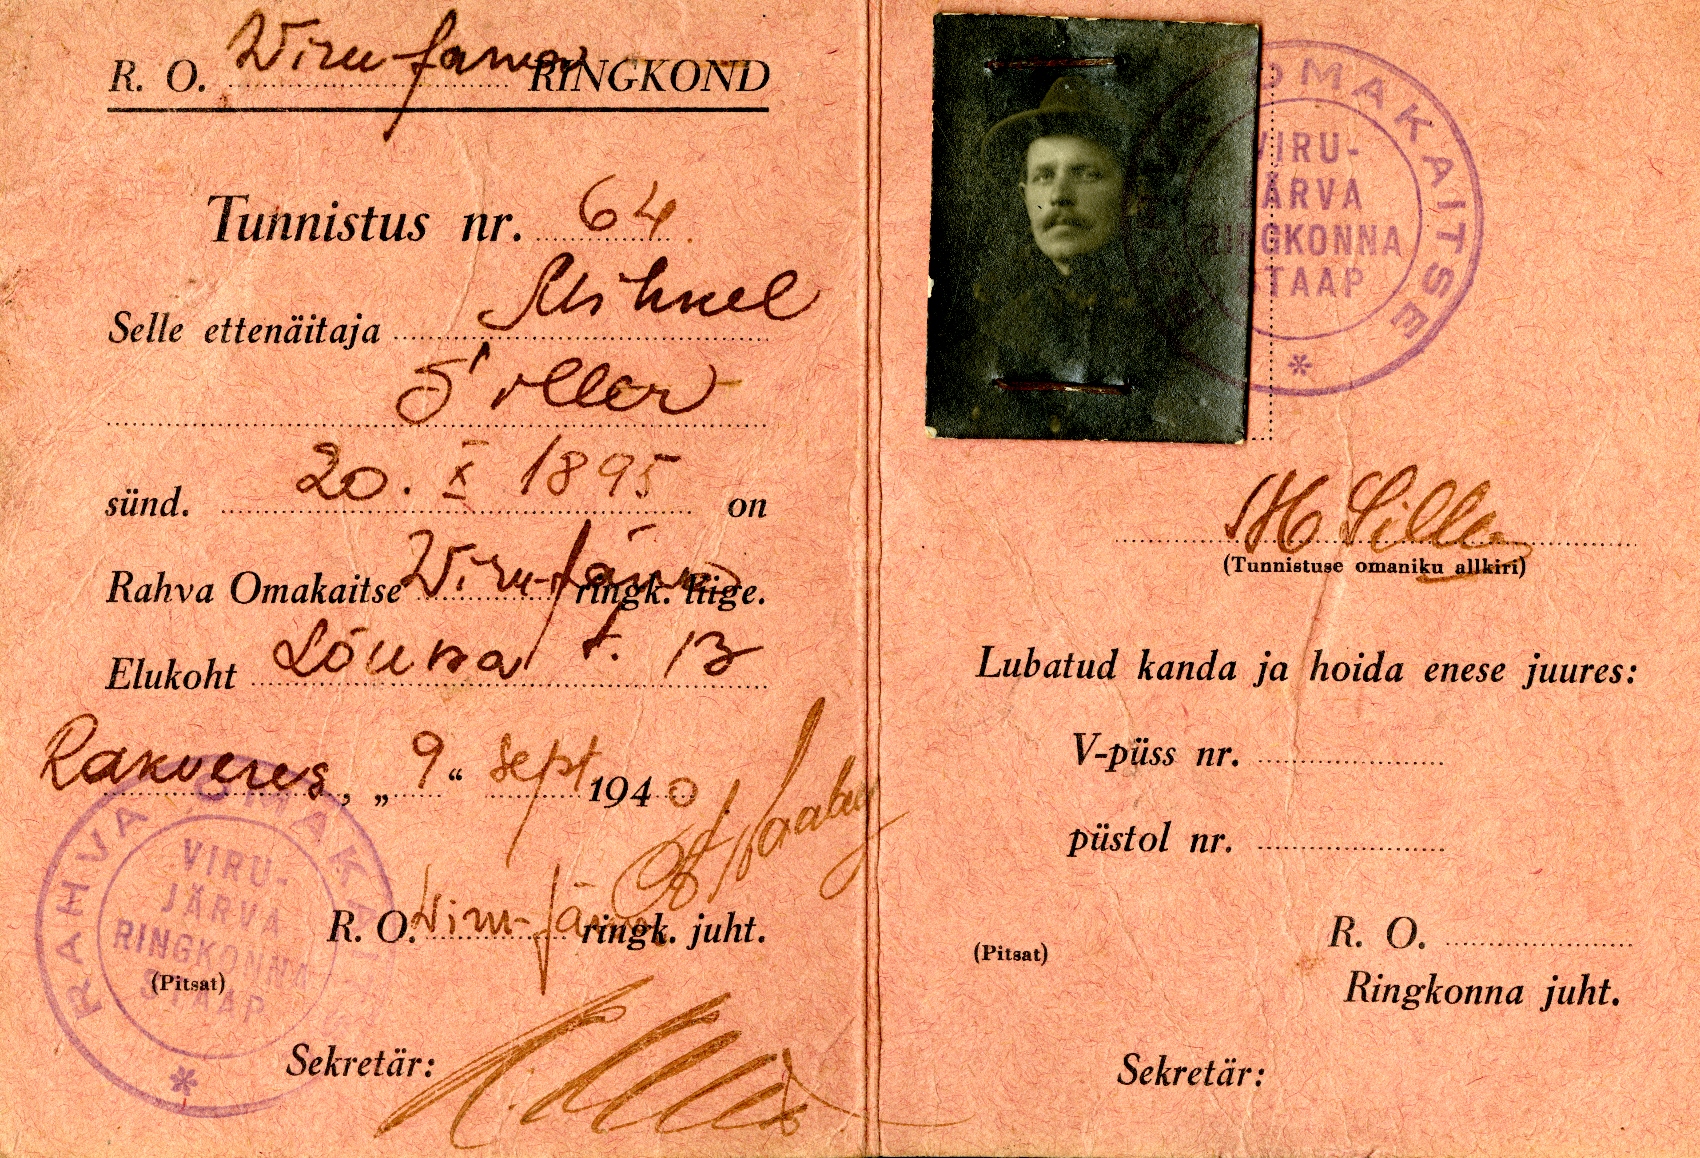 R. O. Wiru-Järva RINGKOND
Tunnistus nr. 64
Selle ettenäitaja Mihkel
Siller
sünd. 20. X 1895 on
Rahva Omakaitse Wiru-Järva ringk. liige.
Elukoht Lõuna t. 13
Rakveres, „ 9 “ sept 1940
R. O. Wiru-Järva ringk. juht.
(Pitsat)
Sekretär:
RAHVA OMAKAITSE
VIRU-
JÄRVA
RINGKONNA
STAAP
*
OMAKAITSE
VIRU-
JÄRVA
RINGKONNA
STAAP
*
M Siller
(Tunnistuse omaniku allkiri)
Lubatud kanda ja hoida enese juures:
V-püss nr.
püstol nr.
(Pitsat)
R. O.
Ringkonna juht.
Sekretär: